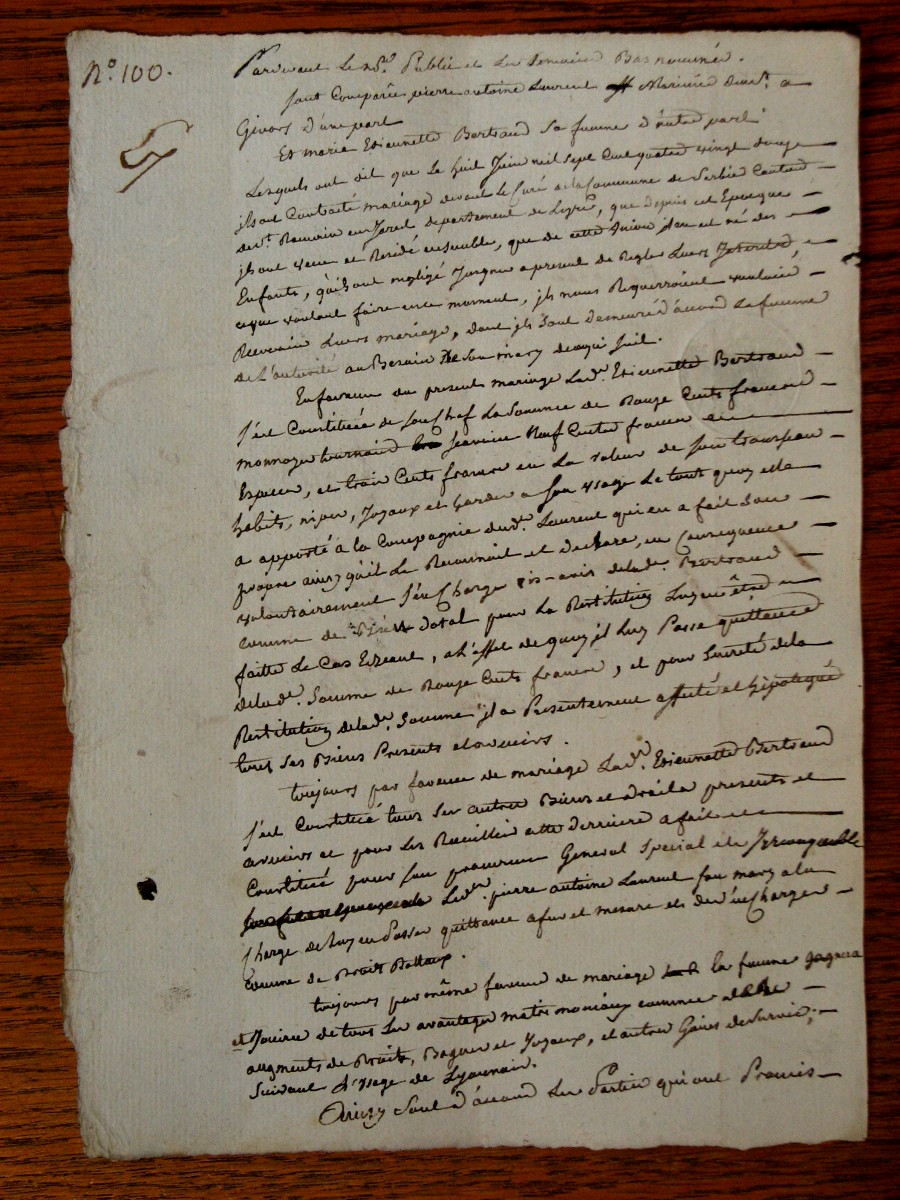 N.º 100.
Pardevant le N.re Public et les Temoins Bas nommés.
sont Comparus pierre antoine Laurent Marinier dem.t a
Givors d'une part
Et marie Etiennette Bertraud sa femme d'autre part
Lesquels ont dit que le huit Juin mil sept Cent quatre vingt douze
ils ont Contracté mariage devant le Curé de la Commune de Canton
de st. Romain en Jarret departement de que depuis cet Epoque
ils ont vecu et Residé ensemble, que de cette Union il en est né des
Enfants, qu'ils ont negligé Jusqua apresent de Regler Leurs Interets,
ceque voulant faire en ce moment, ils nous Requerroient vouloir
Recevoir Leurs mariage, dont ils sont demeurés d'accord La femme
de L'autorité au Besoin de son mary dequi suit.
En faveur du present mariage Lad.e Etiennette Bertraud
s'est Constituée de son Chef La Somme de Douze Cents francs
monnoye tournois savoir Neuf Cents francs en
Especes, et trois Cents francs en La valeur de son trousseau
habits, nipes, Joyaux et hardes a son usage Le tout quoy elle
a apporté à la Compagnie dud.t Laurent qui en a fait son
propre ainsy qu'il Le Reconnoit et declare, en Consequence
volontairement s'en Charge vis-avis delad.e Bertraud
comme de dotal pour La Restitution Luy en être
faitte Le Cas Echeant, a L'effet de quoy il Luy Passe quittance
delad.e Somme de Douze Cents francs, et pour Sureté dela
Restitution delad.e Somme il a Presentement affecté et hipotequé
tous ses Biens Presents et avenirs.
toujours par faveur de mariage Lad.e Etiennette Bertraud
s'est Constitué tous ses autres Biens et droits presents et
avenirs et pour Les Recueillir cette derniere a fait et
Constitué pour son procureur General Special et Irrevoquable
Led.t pierre antoine Laurent son mary a la
Charge de Luy en Passer quittance a fur et mesure et de s'en Charger
comme de Droits Dottaux.
toujours par même faveur de mariage la femme gagnera
et Jouira de tous Les avantages matrimoniaux comme
augments de Droits, Bagues et Joyaux, et autres Gains de Survie,
Suivant L'Usage de Lyonnois.
Ainsy sont d'accord Les Parties qui ont Promis